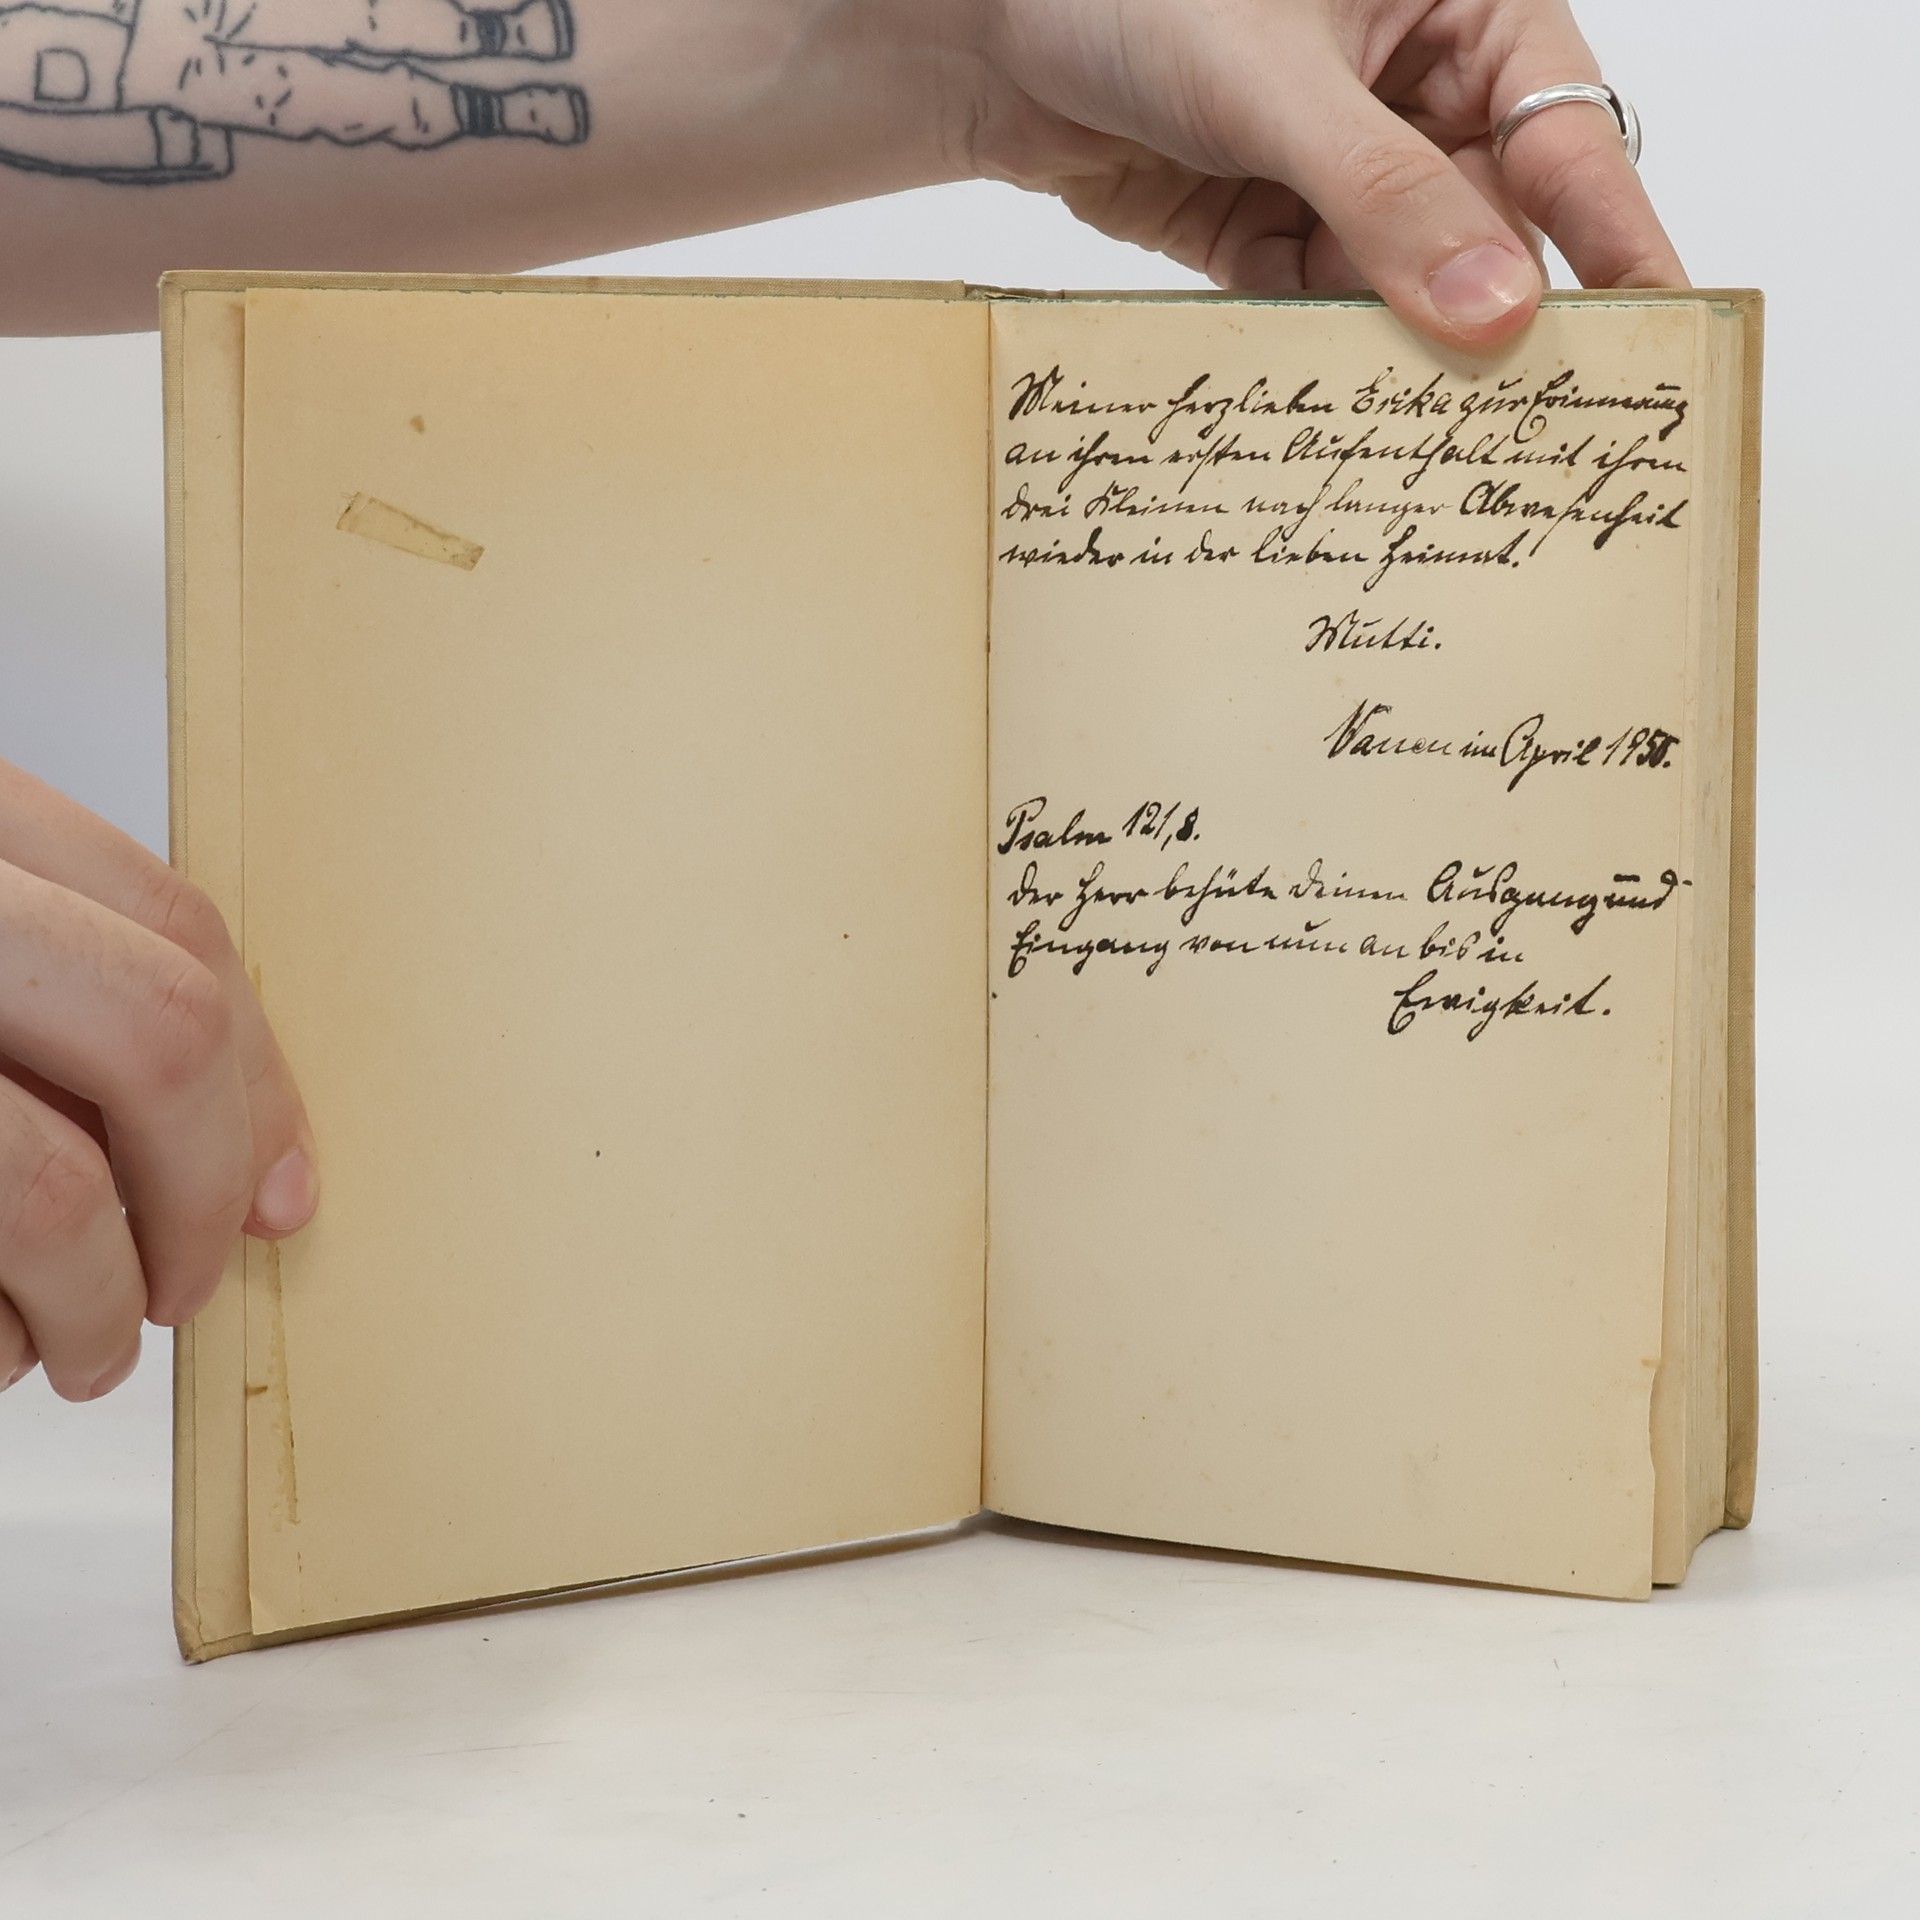 Meiner herzlieben Erika zur Erinnerung
an ihren ersten Aufenthalt mit ihren
drei Kleinen nach langer Abwesenheit
wieder in der lieben Heimat.
Mutti.
im April 1950.
Psalm 121,8.
Der Herr behüte deinen Ausgang und
Eingang von nun an bis in
Ewigkeit.